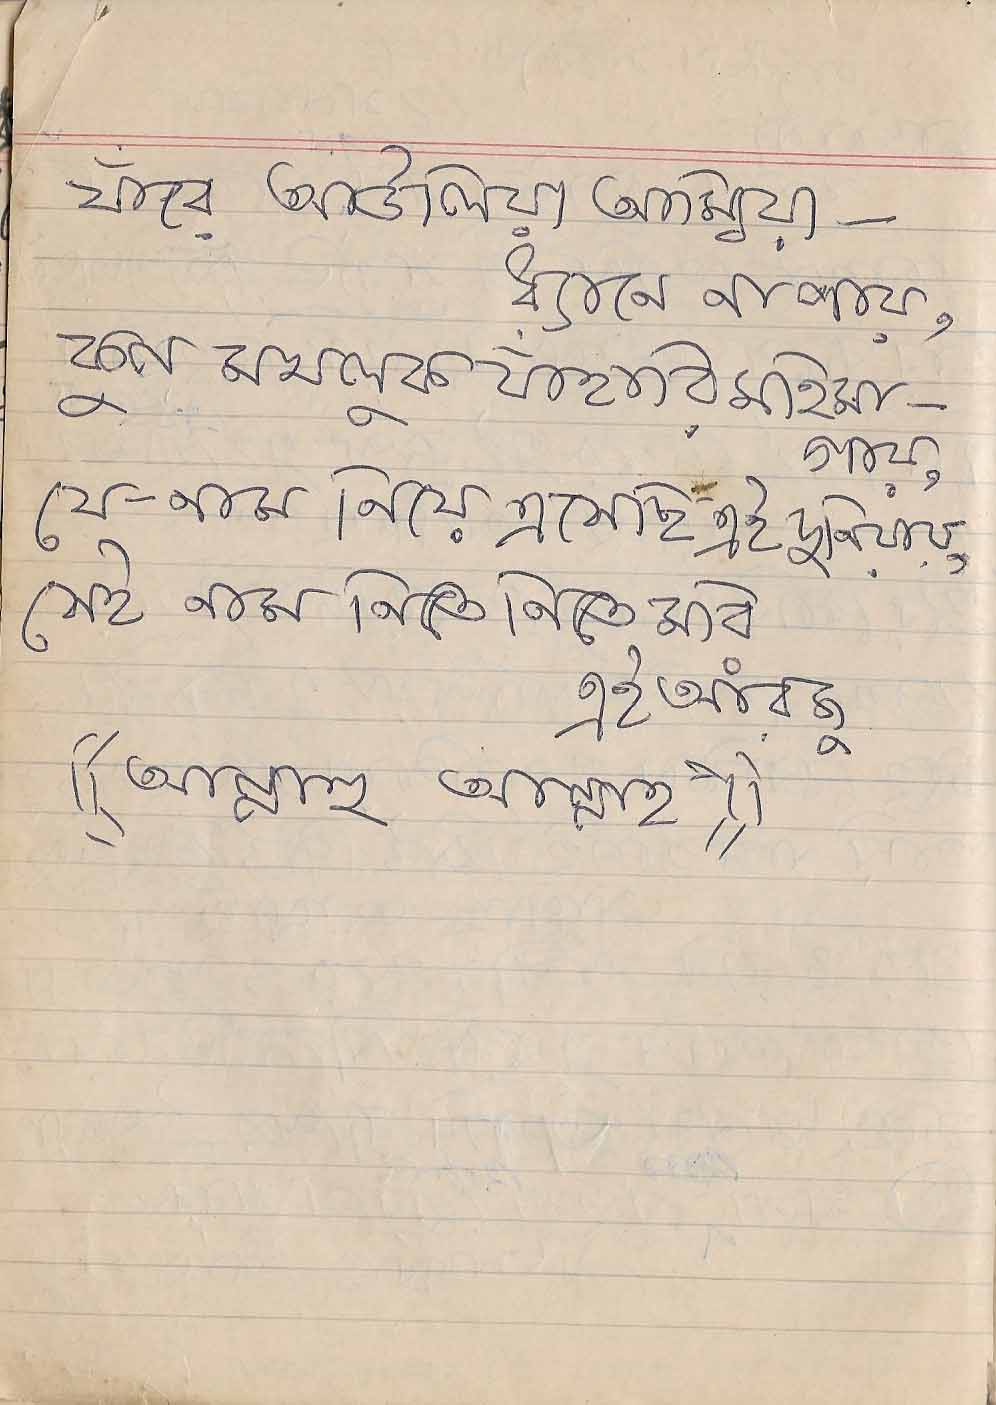 যাঁরে আউলিয়া আম্বিয়া —
ধ্যানে না পায়,
কুল মখলুক যাঁহারি মহিমা —
গায়,
যে-নাম নিয়ে এসেছি এই দুনিয়ায়,
সেই নাম নিতে নিতে মরি
এই আরজু
((আল্লাহু আল্লাহু))